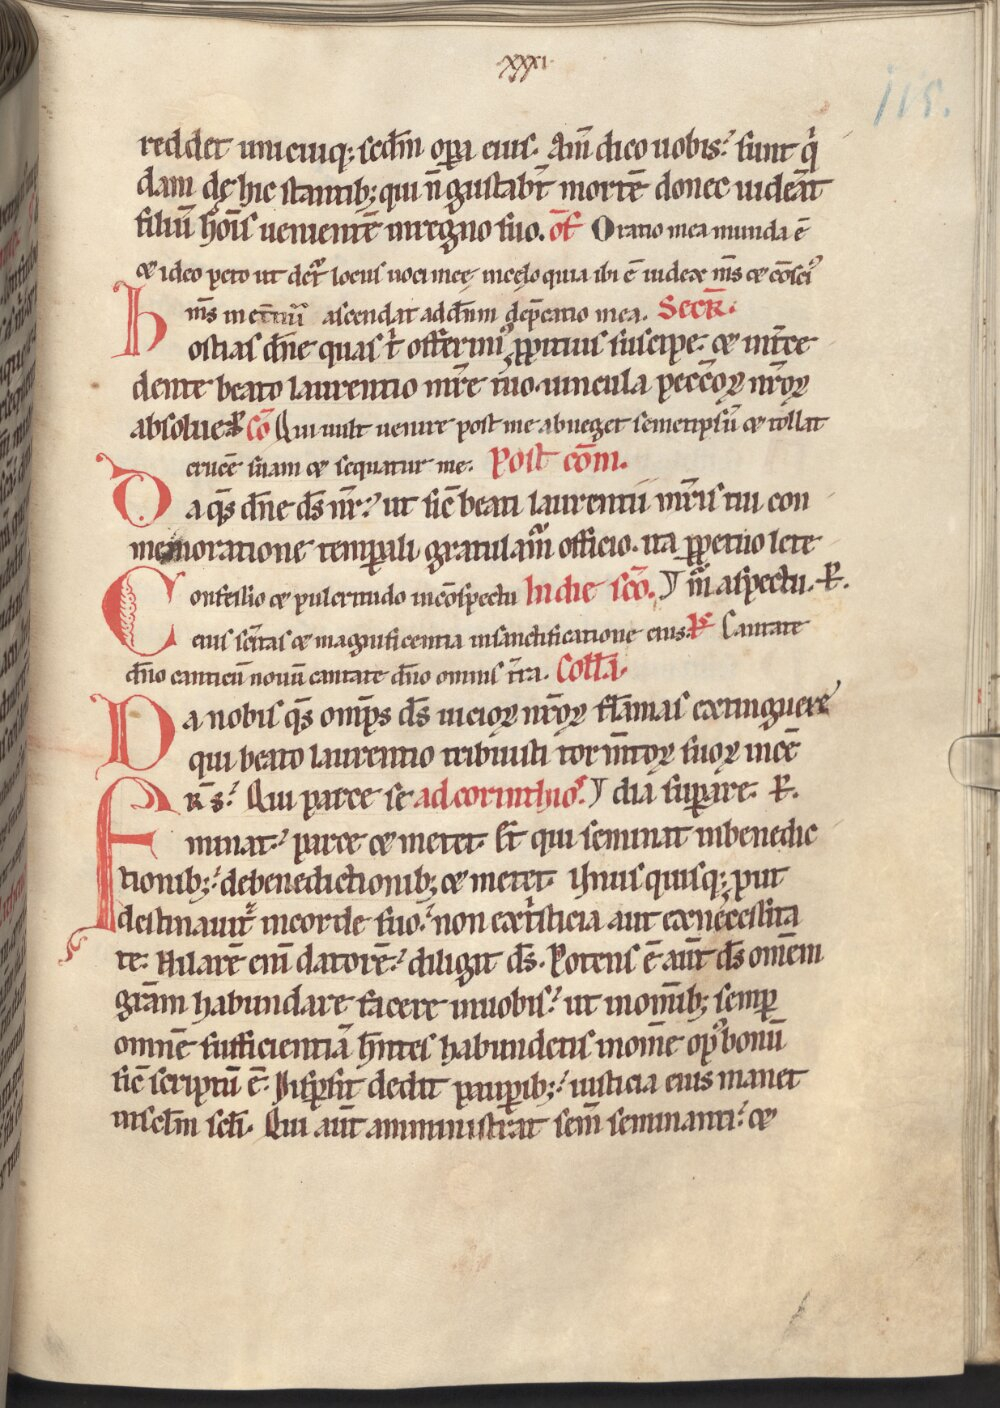 xxxi
115.
reddet unicuiq; scdm opa eius. Am̄ dico uobis: sunt qi
dam de hic stantib; qui n̄ gustabt mortē donec uideāt
filiū hoīs uenientē in regno suo. of Oratio mea munda ē
& ideo peto ut det locus uoci mee in celo quia ibi ē iudex m̄s & cōsci
m̄s ascendat ad dnm depcatio mea. Secr.
Hostias dn̄e quas t offerim ppitius suscipe. & int̄ce
dente beato laurentio mre tuo. uincula peccoꝝ nr̄oꝝ
absolue. Co Qui uult uenire post me abneget semetipsū & tollat
crucē suam & sequatur me. Post com.
Da qs dn̄e ds nr̄ ut sic beati laurentii mris tui con
memoratione temporali gratulam officio. ita ppetuo lete
Confessio & pulcritudo in cōspectu In die sco. aspectu. R.
eius scitas & magnificentia in sanctificatione eius. Ps Cantate
dn̄o canticū nouū cantate dn̄o omnis tra. Coll̄a
Da nobis qs omps ds uicioꝝ nr̄oꝝ flāmas extinguere
qui beato laurentio tribuisti tormtoꝝ suoꝝ incē
Frs: Qui parce se ad corinthios dia supare. R.
minat: parce & metet. Et qui seminat in benedic
tionib;: de benedictionib; & metet. Unus quisq; put
destinauit in corde suo: non ex tristicia aut ex necessita
te. Hilarē eni datorē: diligit ds. Potens ē aut ds omem
gram habundare facere in uobis: ut in omib; semp
omnē sufficientiā hn̄tes habundetis in ome op bonū
sic scriptū ē. Dispsit dedit paupib;: iusticia eius manet
in sclm scli. Qui aut amministrat sem̄ seminanti: &